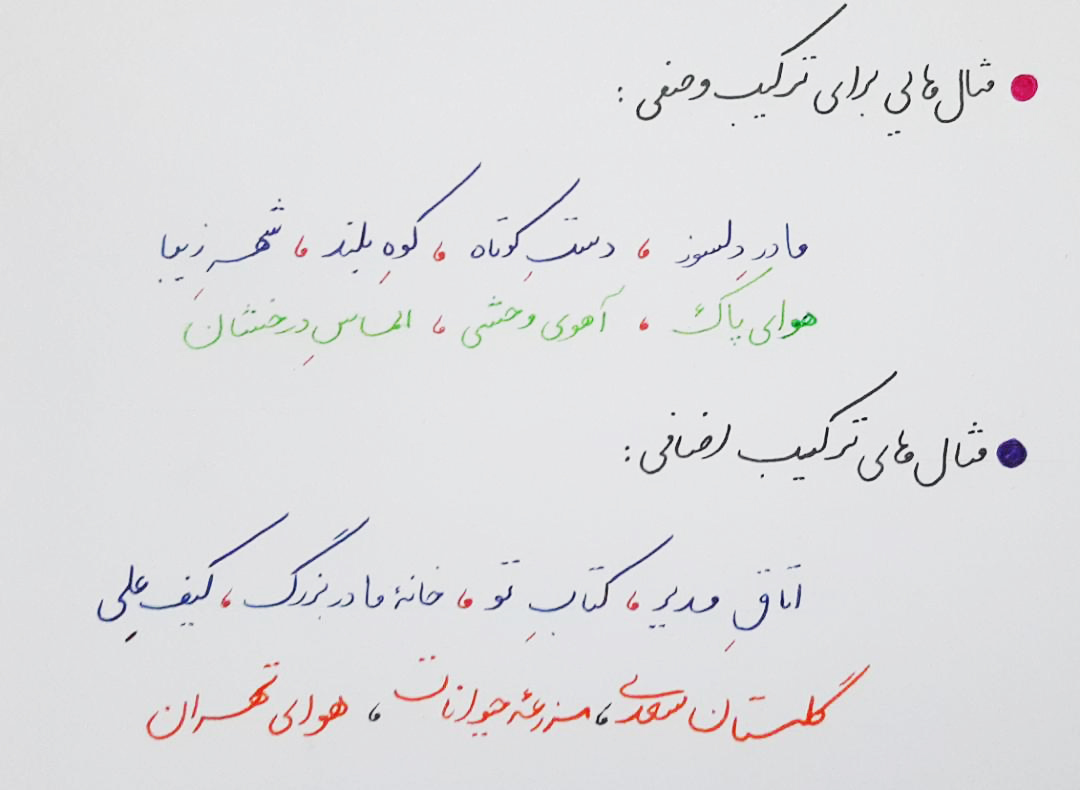 مثال هایی برای ترکیب وصفی :
مادرِ دِلسوز ، دستِ کوتاه ، کوهِ بلند ، شهرِ زیبا
هوای پاک ، آهوی وحشی ، الماسِ درخشان
مثال های ترکیب اضافی :
اتاقِ مدیر ، کتابِ تو ، خانۀ مادربزرگ ، کیفِ علی
گلستان سعدی ، مزرعۀ حیوانات ، هوای تهران